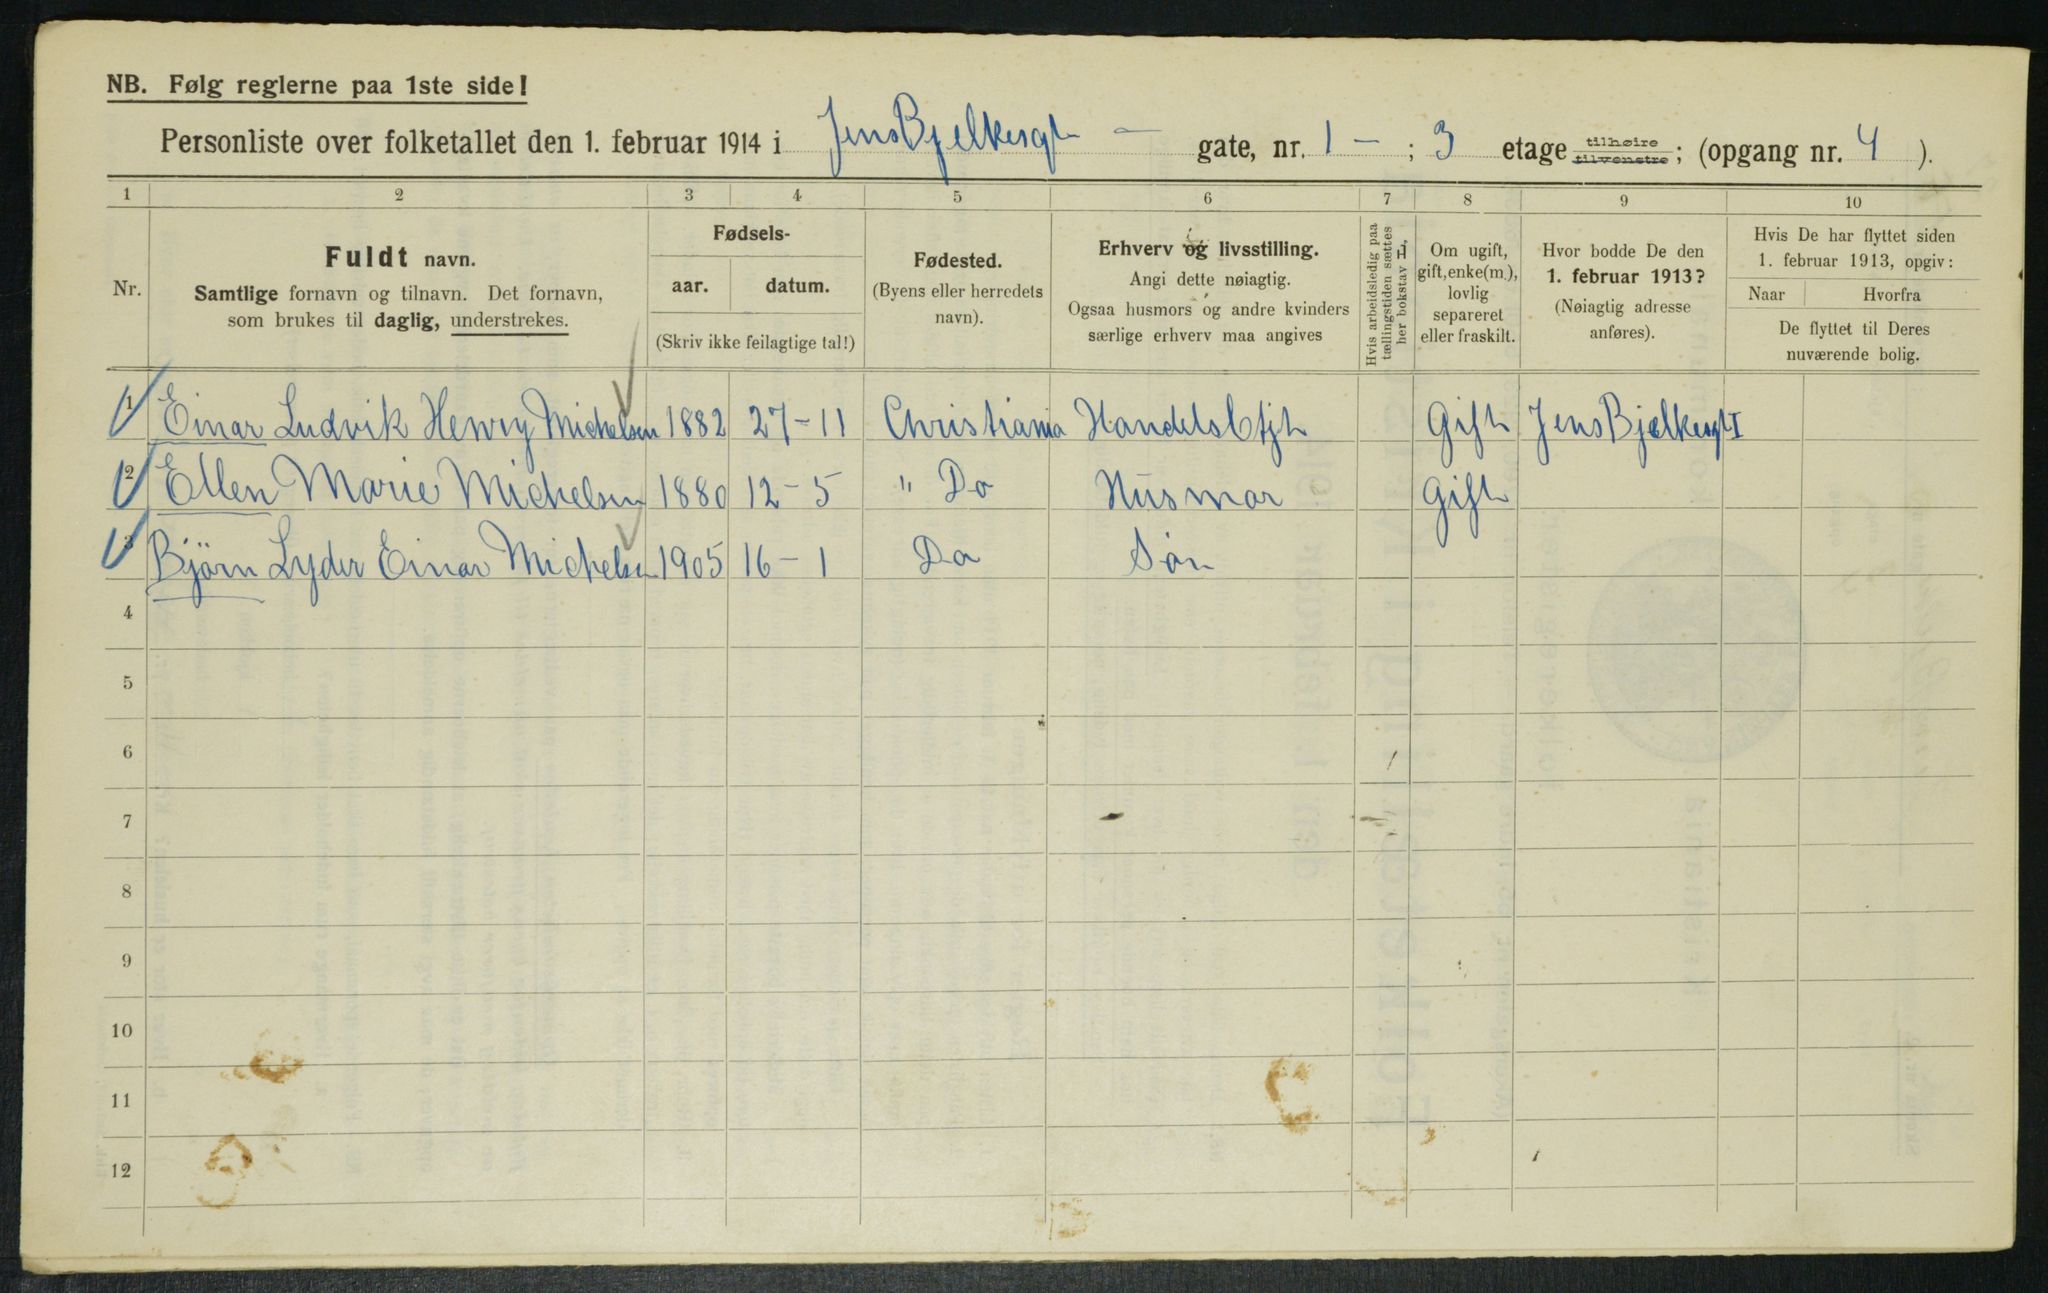 NB. Følg reglerne paa 1ste side!
Personliste over folketallet den 1. februar 1914 i Jens Bjelkesgt — gate, nr. 1 — ; 3 etage tilhøire tilvenstre ; (opgang nr. 4 ).
1 2 3 4 5 6 7 8 9 10
Nr.
Fuldt navn.
Samtlige fornavn og tilnavn. Det fornavn,
som brukes til daglig, understrekes.
Fødsels-
aar. datum.
(Skriv ikke feilagtige tal!)
Fødested.
(Byens eller herredets
navn).
Erhverv og livsstilling.
Angi dette nøiagtig.
Ogsaa husmors og andre kvinders
særlige erhverv maa angives
Hvis arbeidsledig paa
tællingstiden sættes
her bokstav L.
Om ugift,
gift, enke(m.),
lovlig
separeret
eller fraskilt.
Hvor bodde De den
1. februar 1913?
(Nøiagtig adresse
anføres).
Hvis De har flyttet siden
1. februar 1913, opgiv:
Naar Hvorfra
De flyttet til Deres
nuværende bolig.
1 Einar Ludvik Henry Michelsen 1882 27-11 Christiania Handelsbtjt Gift Jens Bjelkesgt I
2 Ellen Marie Michelsen 1880 12-5 " Do Husmor Gift
3 Björn Lyder Einar Michelsen 1905 16-1 Do Sön
4
5
6
7
8
9
10
11
12